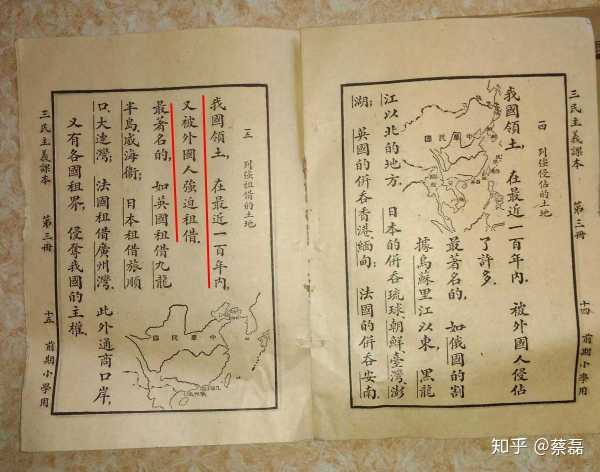 三民主義課本 第三冊 十四 前期小學用
一四 列強侵佔的土地
我國領土，在最近一百年內，被外國人侵佔
了許多．
最著名的，如俄國的割
據烏蘇里江以東，黑龍
江以北的地方，日本的併吞琉球，朝鮮，臺灣，澎
湖；英國的併吞香港，緬甸；法國的併吞安南．
中華民國
一五 列強租借的土地
我國領土，在最近一百年內，
又被外國人強迫租借．
最著名的，如英國租借九龍
半島，威海衞；日本租借旅順
口，大連灣；法國租借廣州灣．
此外通商口岸，
又有各國租界，侵奪我國的主權．
中華民國
三民主義課本 第三冊 十五 前期小學用
知乎 @蔡磊